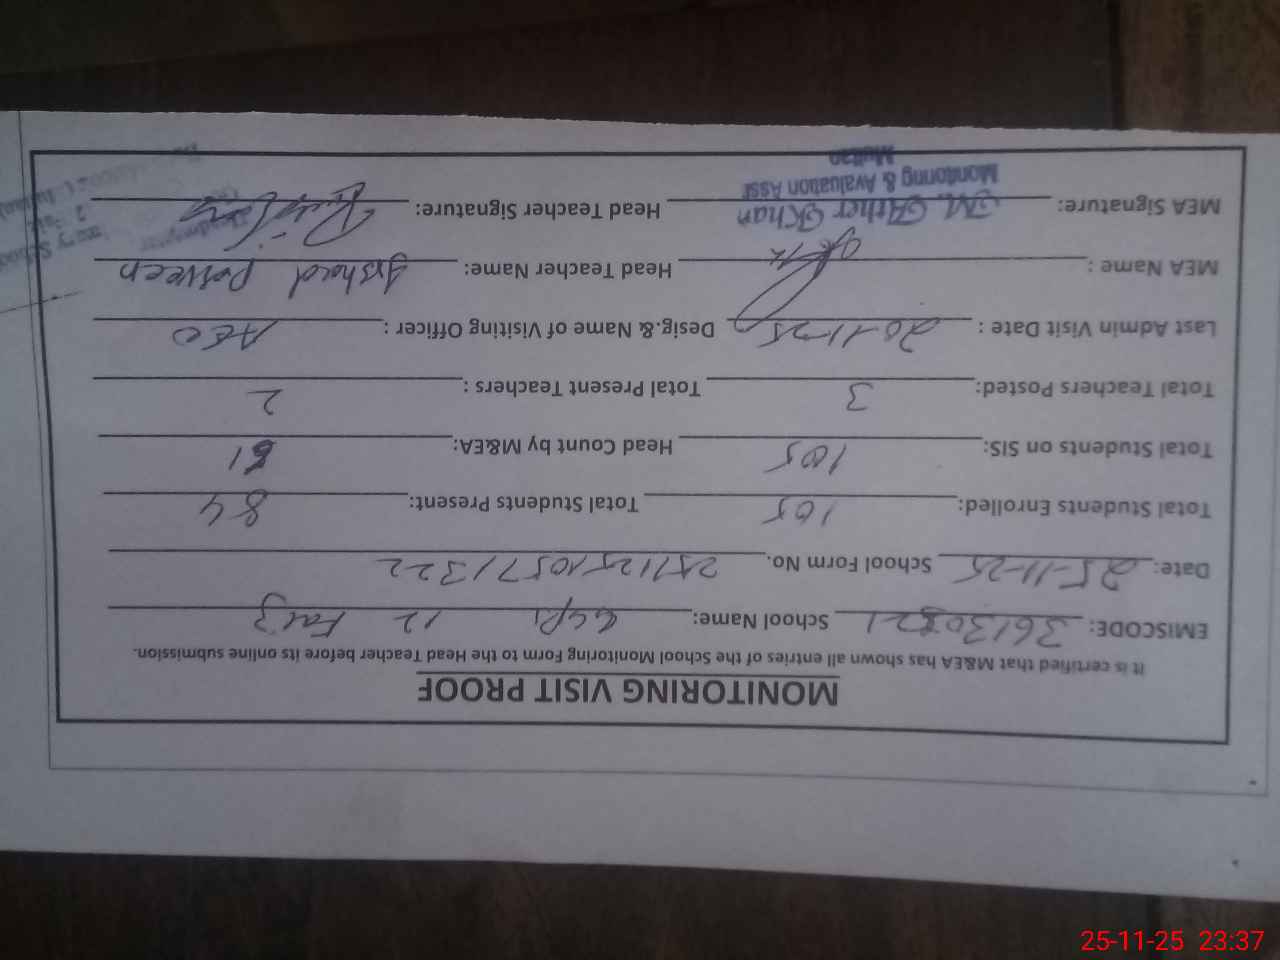 MONITORING VISIT PROOF
It is certified that M&EA has shown all entries of the School Monitoring Form to the Head Teacher before its online submission.
EMISCODE: School Name: 12 Faiz
Date: 25-11-25 School Form No.
Total Students Enrolled: 105 Total Students Present: 84
Total Students on SIS: 105 Head Count by M&EA:
Total Teachers Posted: 3 Total Present Teachers : 2
Last Admin Visit Date : 20-11-25 Desig.&.Name of Visiting Officer : AEO
MEA Name : Head Teacher Name: Irshad Parveen
MEA Signature: M. Ather Khan Head Teacher Signature:
Monitoring & Evaluation Asst
Multan
25-11-25 23:37